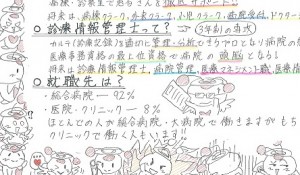 将来は、病棟クラーク、外来クラーク、小児クラーク、病院受付、ドクター
○診療情報管理士って？ (3年制の専攻)
カルテ(診療記録)を適切に管理・分析
医療事務資格の最上位資格で病院の頭脳となる
将来は診療情報管理士、病院管理、医療マネジメント職、医療情報
○就職先は？
・総合病院 ― 92%
・医院・クリニック ― 8%
ほとんどの人が総合病院、大病院で働きますが
クリニックで働く人もいます!!